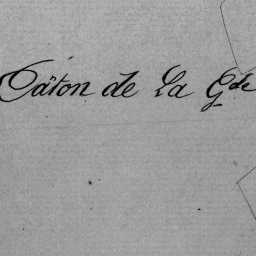 Pâton de La Gde